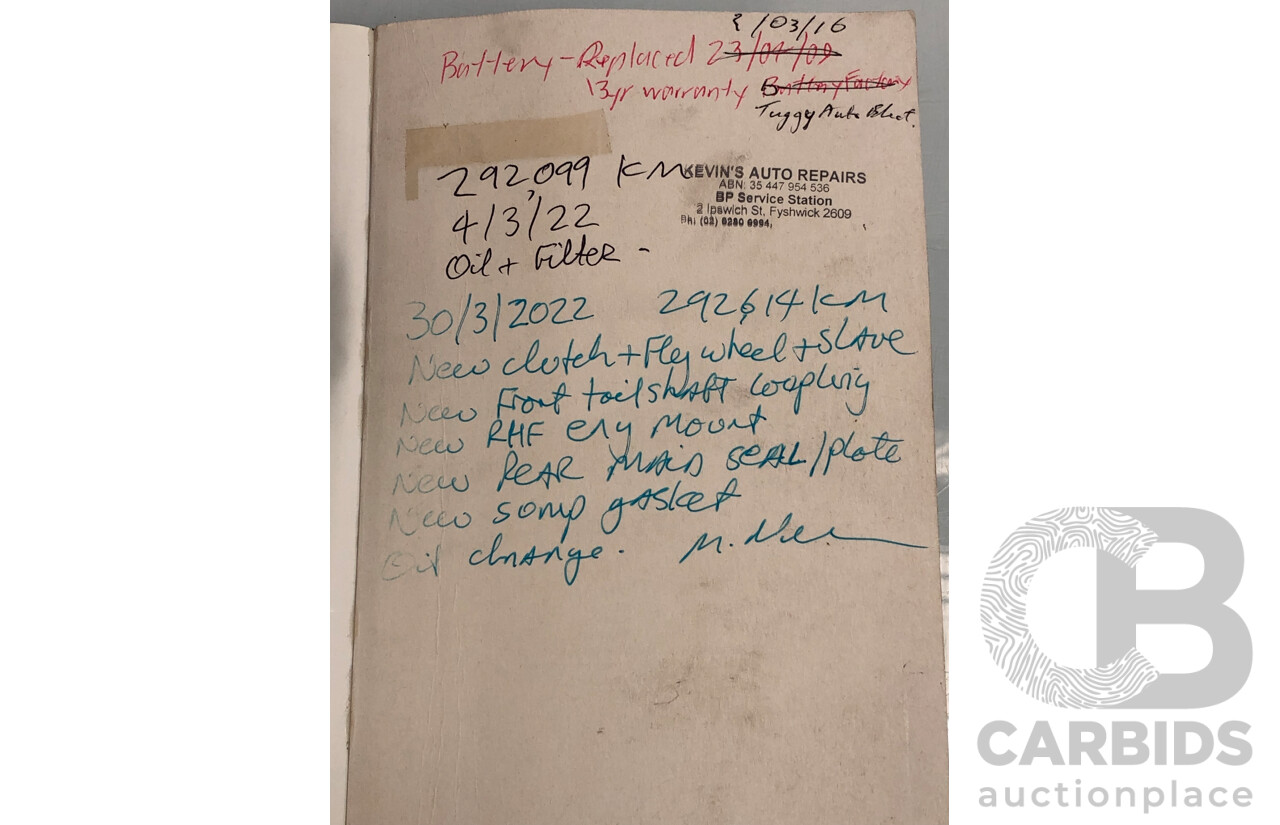 2/03/16
Battery - Replaced 23/04/09
3yr warranty Battery Factory
Tuggy Auto Elect.
292,099 KM
4/3/22
Oil + Filter -
KEVIN'S AUTO REPAIRS
ABN: 35 447 954 536
BP Service Station
2 Ipswich St, Fyshwick 2609
Ph: (02) 6280 6994
30/3/2022 292614KM
New clutch + Fly wheel + Slave
New Front tail shaft coopling
New RHF eng mount
New Rear main seal/plate
New somp gasket
Oil change. M.
CB
CARBIDS
auctionplace